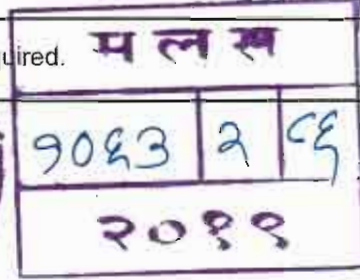 uired.
म ल ख
१०६३ २ ८६
२०११